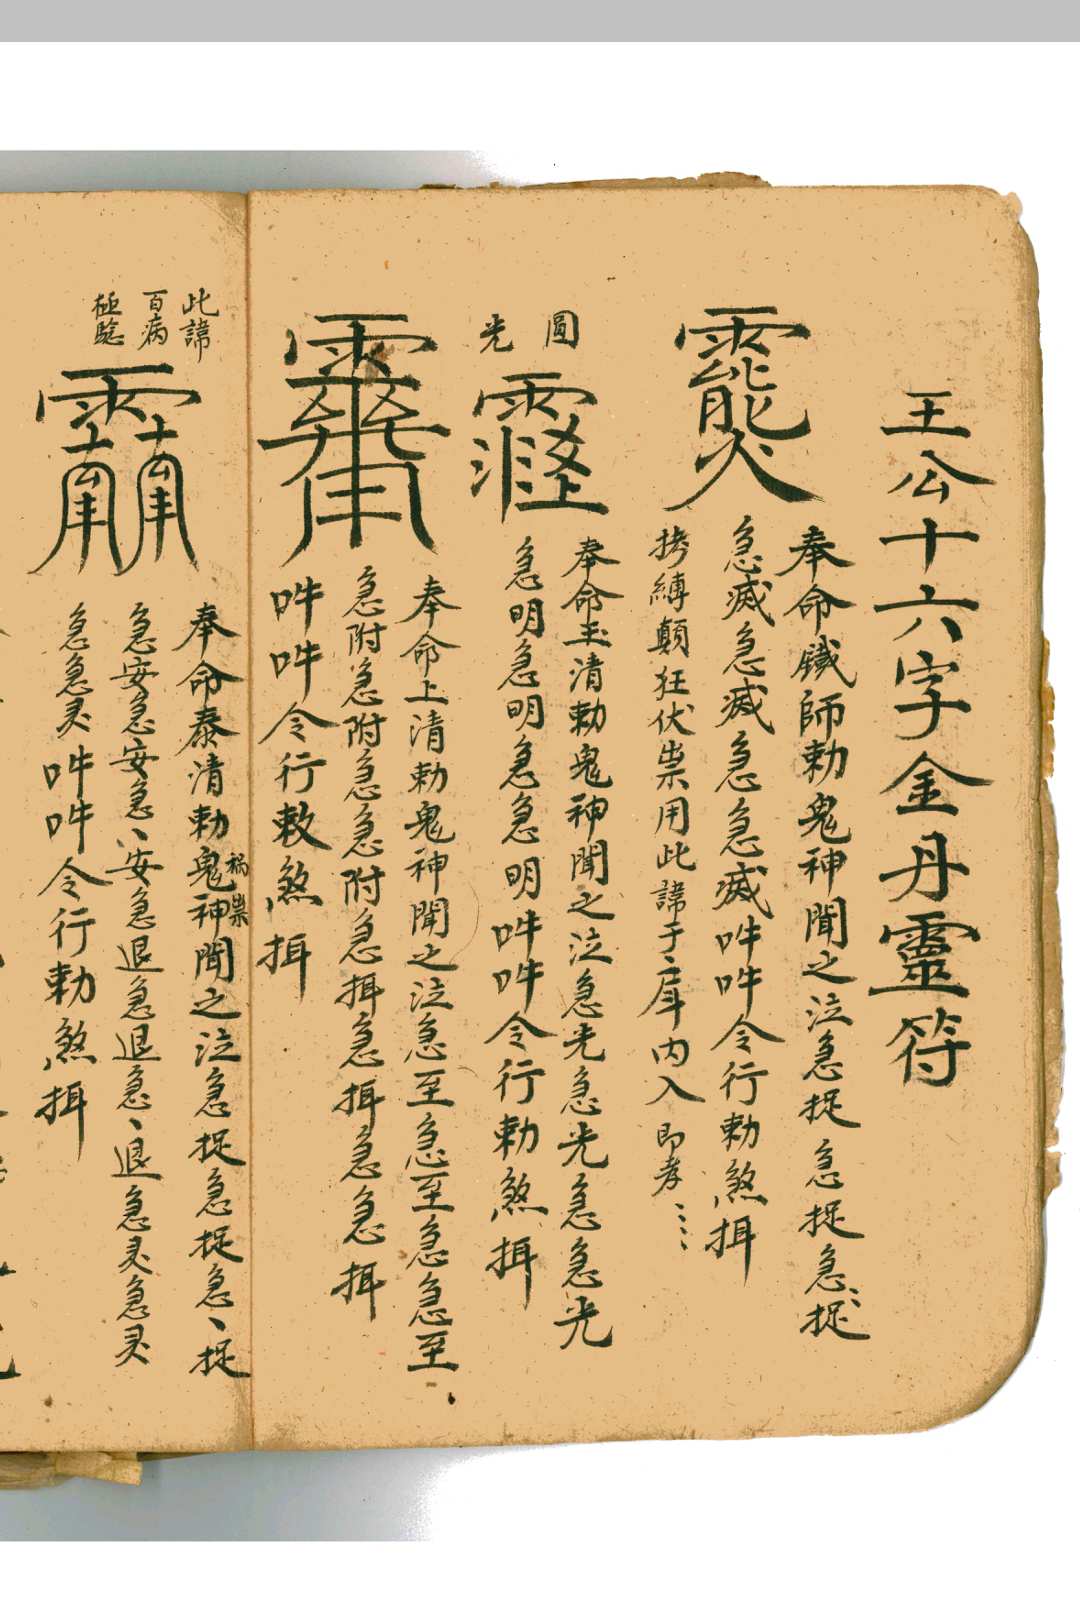 王公十六字金丹靈符
奉命鐵師勅鬼神聞之泣急捉急捉急〻捉
急滅急滅急急滅吽吽令行勅煞揖
拷縛顛狂伏祟用此諱于
内入即孝
圓光
奉命玉清勅鬼神聞之泣急光急光急急光
急明急明急急明吽吽令行勅煞揖
奉命上清勅鬼神聞之泣急至急至急急至
急附急附急急附急揖急揖急急揖
吽吽令行敕煞揖
此諱
百病
極驗
奉命泰清勅鬼神聞之泣急捉急捉急〻捉
禍祟
急安急安急〻安急退急退急〻退急灵急灵
急急灵吽吽令行勅煞揖